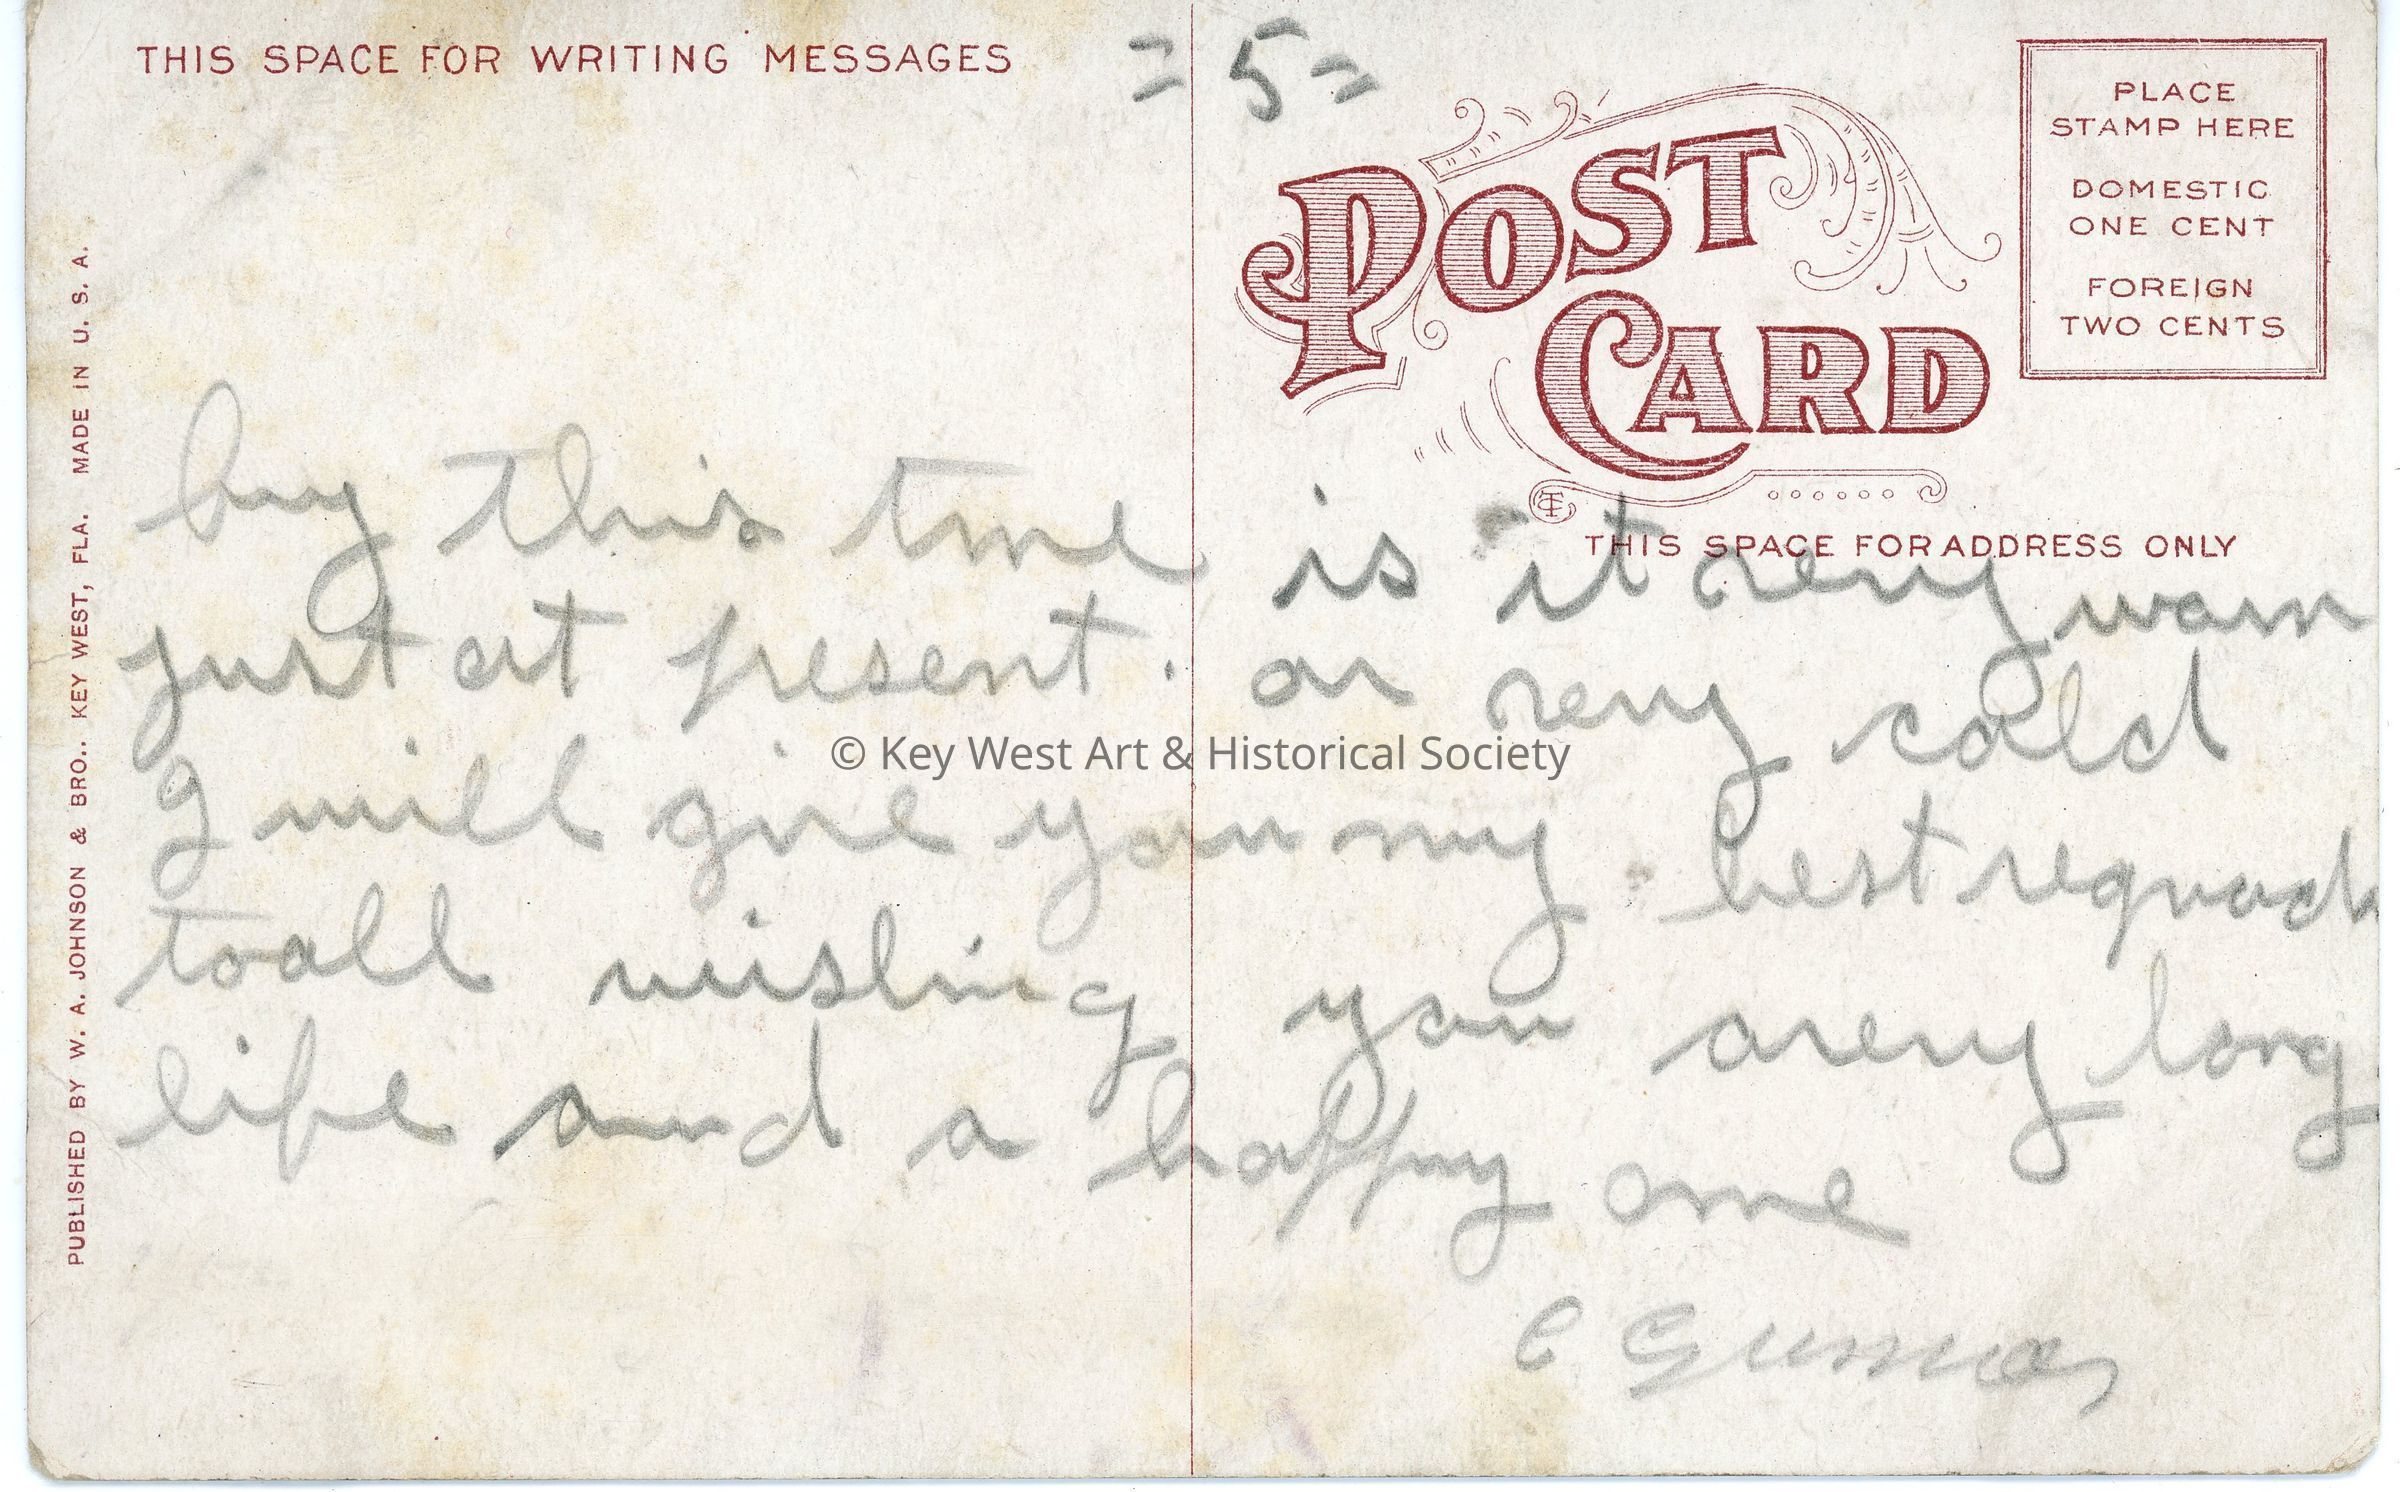 THIS SPACE FOR WRITING MESSAGES
= 5 =
POST
CARD
PLACE
STAMP HERE
DOMESTIC
ONE CENT
FOREIGN
TWO CENTS
THIS SPACE FOR ADDRESS ONLY
by this time is it very warm
just at present. or very cold
I will give you my best
to all wishing you a very long
life and a happy one
C
PUBLISHED BY W. A. JOHNSON & BRO.. KEY WEST, FLA. MADE IN U. S. A.
© Key West Art & Historical Society